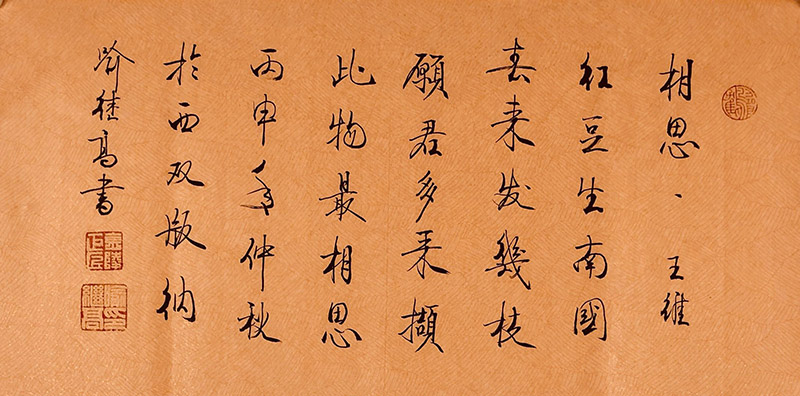 相思、王維
紅豆生南國
春来发幾枝
願君多采擷
此物最相思
丙申年仲秋
於西双版納
喻继高書